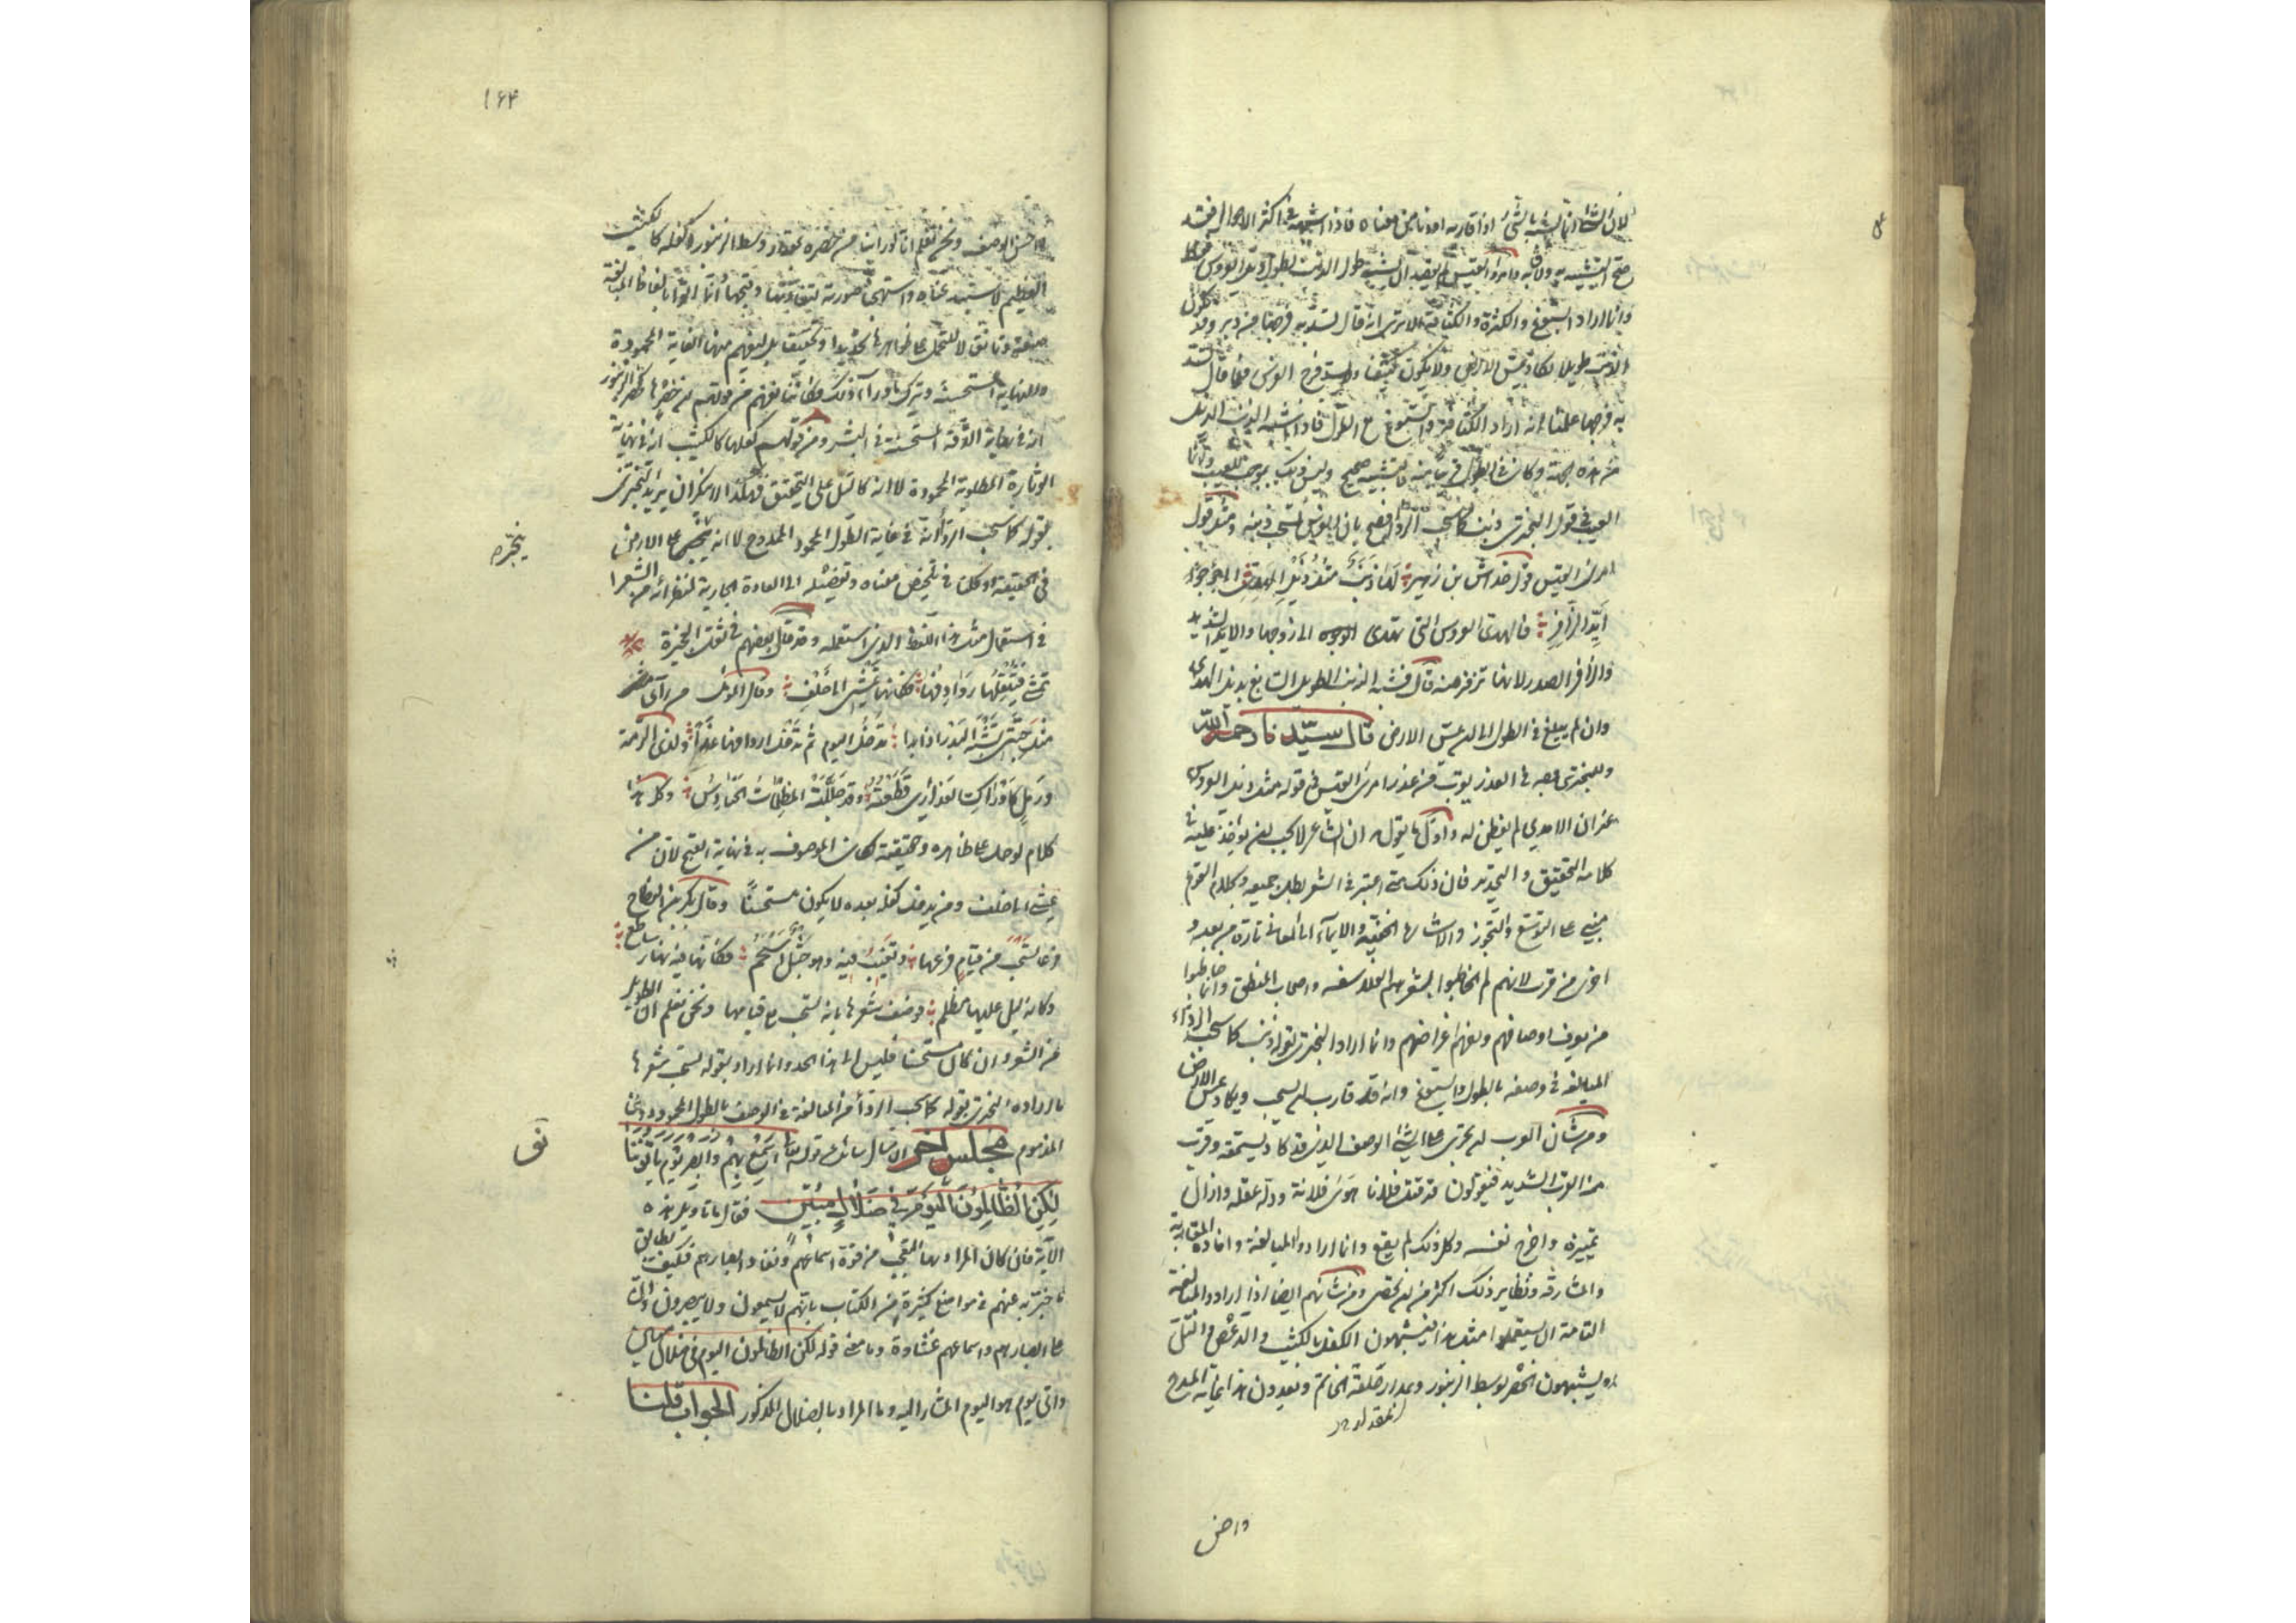 لان الشئ انما يشبه بالشئ اذا قاربه او دنا من معناه فاذا اشبهه في اكثر الاحوال فقد
صح التشبيه به ولاق به وامرؤ القيس لم يقصد ان يشبه طول الذنب بطول ذيل العروس فقط
وانما اراد السبوغ والكثرة والكثافة الا ترى انه قال تسد به فرجها من دبر وقد يكون
الذنب طويلا يكاد يمس الارض ولا يكون كثيفا ولا يسد فرج الفرس فلما قال تسد
به فرجها علمنا انه اراد الكثافة والسبوغ مع الطول فاذا اشبه الذنب الذيل
من هذه الجهة وكان في الطول قريبا منه فالتشبيه صحيح وليس ذلك بموجب للعيب وانما
العيب في قول البحتري ذنب كما سحب الرداء فافصح بان الفرس يسحب ذنبه ومثل قول
امرئ القيس قول خداش بن زهير لها ذنب مثل ذيل الهدي الى جؤجؤ
ايد الزافر فالهدي العروس التي تهدى الى زوجها والايد الشديد
والزافر الصدر لانها تزفر منه قال فشبه الذنب الطويل السابغ بذيل الهدي
وان لم يبلغ في الطول الى ان يمس الارض قال سيدنا رحمه الله
وللبحتري وجه في العذر يقرب من عذر امرئ القيس في قوله مثل ذيل العروس
غير ان الامدي لم يفطن له واول ما يقوله ان الشاعر لا يجب ان يؤخذ عليه في
كلامه التحقيق والتحديد فان ذلك متى اعتبر في الشعر بطل جميعه وكلام القوم
مبني على التوسع والتجوز والاشارات الخفية والايماء الى المعاني تارة من بعد و
اخرى من قرب لانهم لم يخاطبوا بشعرهم الفلاسفة واصحاب المنطق وانما خاطبوا
من يعرف اوصافهم ويفهم اغراضهم وانما اراد البحتري بقوله ذنب كما سحب الرداء
المبالغة في وصفه بالطول والسبوغ وانه قد قارب ان يسحب ويكاد يمس الارض
ومن شان العرب ان تجري على الشئ الوصف الذي قد كاد يستحقه وقرب
منه القرب الشديد فيقولون قد قتل فلانا هوى فلانة ودله عقله وازال
تمييزه واخرج نفسه وكل ذلك لم يقع وانما ارادوا المبالغة وافادة المقاربة
والمشارفة ونظاير ذلك اكثر من ان تحصى ومن شانهم ايضا اذا ارادوا المبالغة
التامة ان يستعملوا مثل هذا فيشبهون الكفل بالكثيب والدعص والتل
ويشبهون الخصر بوسط الزنبور وبمدار حلقة الخاتم ويعدون هذا غاية المدح
واحسن
١٦٤
واحسن الوصف ونحن نعلم انا لو راينا من خصره مقدار وسط الزنبور وكفله كالكثيب
العظيم لاستبعدناه واستهجنا صورته لتفاوتها وقبحها وانما اتوا بالفاظ المبالغة
صنعة وتانقا لا لتحمل على ظواهرها تحديدا وتحقيقا بل ليفهم منها الغاية المحمودة
والنهاية المستحسنة ويترك ما وراء ذلك فكانا نفهم من قولهم خصرها كخصر الزنبور
انه في نهاية الدقة المستحسنة في البشر ومن قولهم كفلها كالكثيب انه في نهاية
الوثارة المطلوبة المحمودة لا انه كالتل على التحقيق فهكذا لا ينكر ان يريد البحتري
بقوله كما سحب الرداء انه في غاية الطول المحمود الممدوح لا انه ينجر على الارض
في الحقيقة ونكل في تلخيص معناه وتفصيله الى العادة الجارية لنظرائه من الشعرا
في استعمال مثل هذا اللفظ الذي استعمله وقد قال بعضهم في ثقل العجيزة
تمشي فتثقلها روادفها فكانها تمشي الى خلف وقال المؤمل من راى مثل
حبتي تشبه البدر اذ بدا تدخل اليوم ثم تدخل اردافها غدا ولذي الرمة
ورمل كاوراك العذارى قطعته وقد جللته المظلمات الحنادس وكل هذا
كلام لو حمل على ظاهره وحقيقته لكان الموصوف به في نهاية القبح لان من
يمشي الى خلف ومن يدخل كفله بعده لا يكون مستحسنا وقال بكر بن النطاح
فرعاء تسحب من قيام فرعها وتغيب فيه وهو جثل اسحم فكانها فيه نهار ساطع
وكانه ليل عليها مظلم فوصف شعرها بانه يسحب مع قيامها ونحن نعلم ان الطويل
من الشعر وان كان مستحسنا فليس الى هذا الحد وانما اراد بقوله تسحب شعرها
ما اراده البحتري بقوله كما سحب الرداء من المبالغة في الوصف بالطول المحمود دون
المذموم مجلس اخر ان سال سائل عن قوله تعالى اسمع بهم وابصر يوم ياتوننا
لكن الظالمون اليوم في ضلال مبين فقال ما تاويل هذه
الآية فان كان المراد بها التعجب من قوة اسماعهم ونفاذ ابصارهم فكيف يطابق
ما خبر به عنهم في مواضع كثيرة من الكتاب بانهم لا يسمعون ولا يبصرون وان
على ابصارهم واسماعهم غشاوة وما معنى قوله لكن الظالمون اليوم في ضلال مبين
واي يوم هو اليوم المشار اليه وما المراد بالضلال المذكور الجواب قلنا